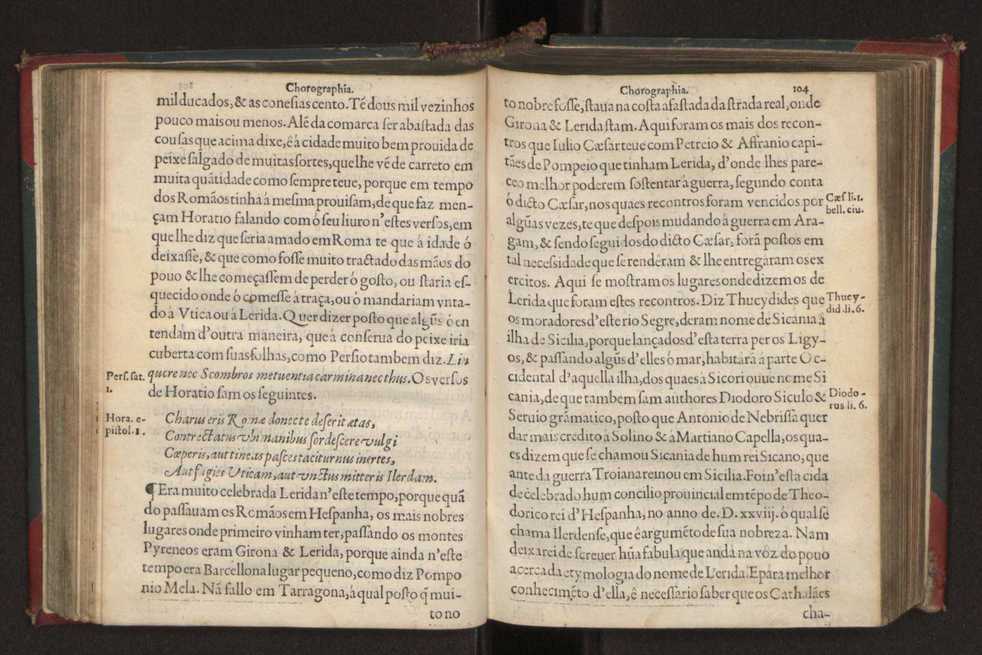 Chorographia.
mil ducados, & as conesias cento. Té dous mil vezinhos
pouco mais ou menos. Alé da comarca ser abastada das
cousas que acima dixe, é â cidade muito bem prouida de
peixe salgado de muitas sortes, que lhe vé de carreto em
muita quãtidade como sempre teue, porque em tempo
dos Romãos tinha â mesma prouisam, de que faz men-
çam Horatio falando com ó seu liuro n'estes versos, em
que lhe diz que seria amado em Roma te que â idade ó
deixasse, & que como fosse muito tractado das mãos do
pouo & lhe começassem de perder ó gosto, ou staria es-
quecido onde ó comesse â traça, ou ó mandariam vnta-
do â Vtica ou â Lerida. Quer dizer posto que algũs ó en
tendam d'outra maneira, que â conserua do peixe iria
cuberta com suas folhas, como Persio tambem diz. Lin
Pers. sat.
1.
quere nec Scombros metuentia carmina nec thus. Os versos
de Horatio sam os seguintes.
Hora. e-
pistol. 1.
Charus eris Romæ donec te deserit ætas,
Contrectatus vbi manibus sordescere vulgi
Cœperis, aut tineas pasces taciturnus inertes,
Aut fugies Vticam, aut vnctus mitteris Ilerdam.
¶ Era muito celebrada Lerida n'este tempo, porque quã
do passauam os Romãos em Hespanha, os mais nobres
lugares onde primeiro vinham ter, passando os montes
Pyreneos eram Girona & Lerida, porque ainda n'este
tempo era Barcellona lugar pequeno, como diz Pompo
nio Mela. Nã fallo em Tarragona, â qual posto q̃ mui-
to no
Chorographia. 104
to nobre fosse, staua na costa afastada da strada real, onde
Girona & Lerida stam. Aqui foram os mais dos recon-
tros que Iulio Cæsar teue com Petreio & Affranio capi-
tães de Pompeio que tinham Lerida, d'onde lhes pare-
ceo melhor poderem sostentar â guerra, segundo conta
ó dicto Cæsar, nos quaes recontros foram vencidos por
Cæs. li. 1.
bell. ciu.
algũas vezes, te que despois mudando â guerra em Ara-
gam, & sendo seguidos do dicto Cæsar, forã postos em
tal necessidade que se renderam & lhe entregaram os ex
ercitos. Aqui se mostram os lugares onde dizem os de
Lerida que foram estes recontros. Diz Thucydides que
Thucy-
did. li. 6.
os moradores d'este rio Segre, deram nome de Sicania â
ilha de Sicilia, porque lançados d'esta terra per os Ligy-
os, & passando algũs d'elles ó mar, habitarã â parte Oc-
cidental d'aquella ilha, dos quaes â Sicori ouue nome Si
cania, de que tambem sam authores Diodoro Siculo &
Diodo-
rus li. 6.
Seruio grãmatico, posto que Antonio de Nebrissa quer
dar mais credito â Solino & â Martiano Capella, os qua-
es dizem que se chamou Sicania de hum rei Sicano, que
ante da guerra Troiana reinou em Sicilia. Foi n'esta cida
de celebrado hum concilio prouincial em tẽpo de Theo-
dorico rei d'Hespanha, no anno de. D. xxviij. ó qual se
chama Ilerdense, que é argumẽto de sua nobreza. Nam
deixarei de screuer hũa fabula que anda na voz do pouo
acerca da etymologia do nome de Lerida. E para melhor
conhecimẽto d'ella, é necessario saber que os Cathalães
cha-